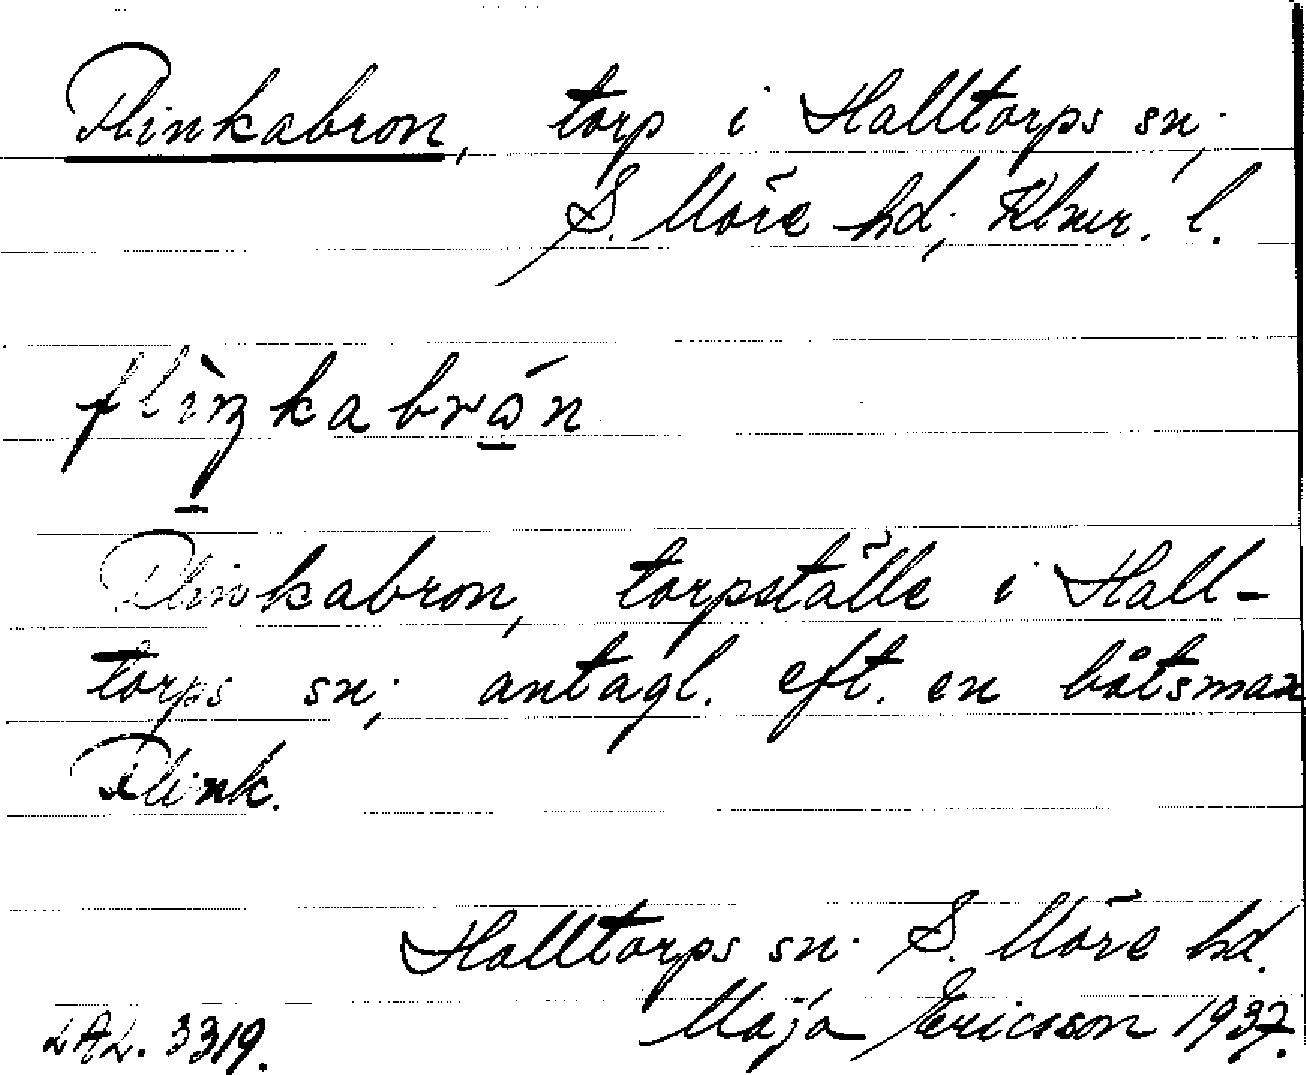 Flinkabron, torp i Halltorps sn,
S. Möre hd, Klmr. l.
flìŋkabrón
Flinkabron, torpställe i Hall-
torps sn, antagl. eft. en båtsman
Flink.
Halltorps sn. S. Möre hd.
Maja Ericsson 1937.
LAL. 3319.